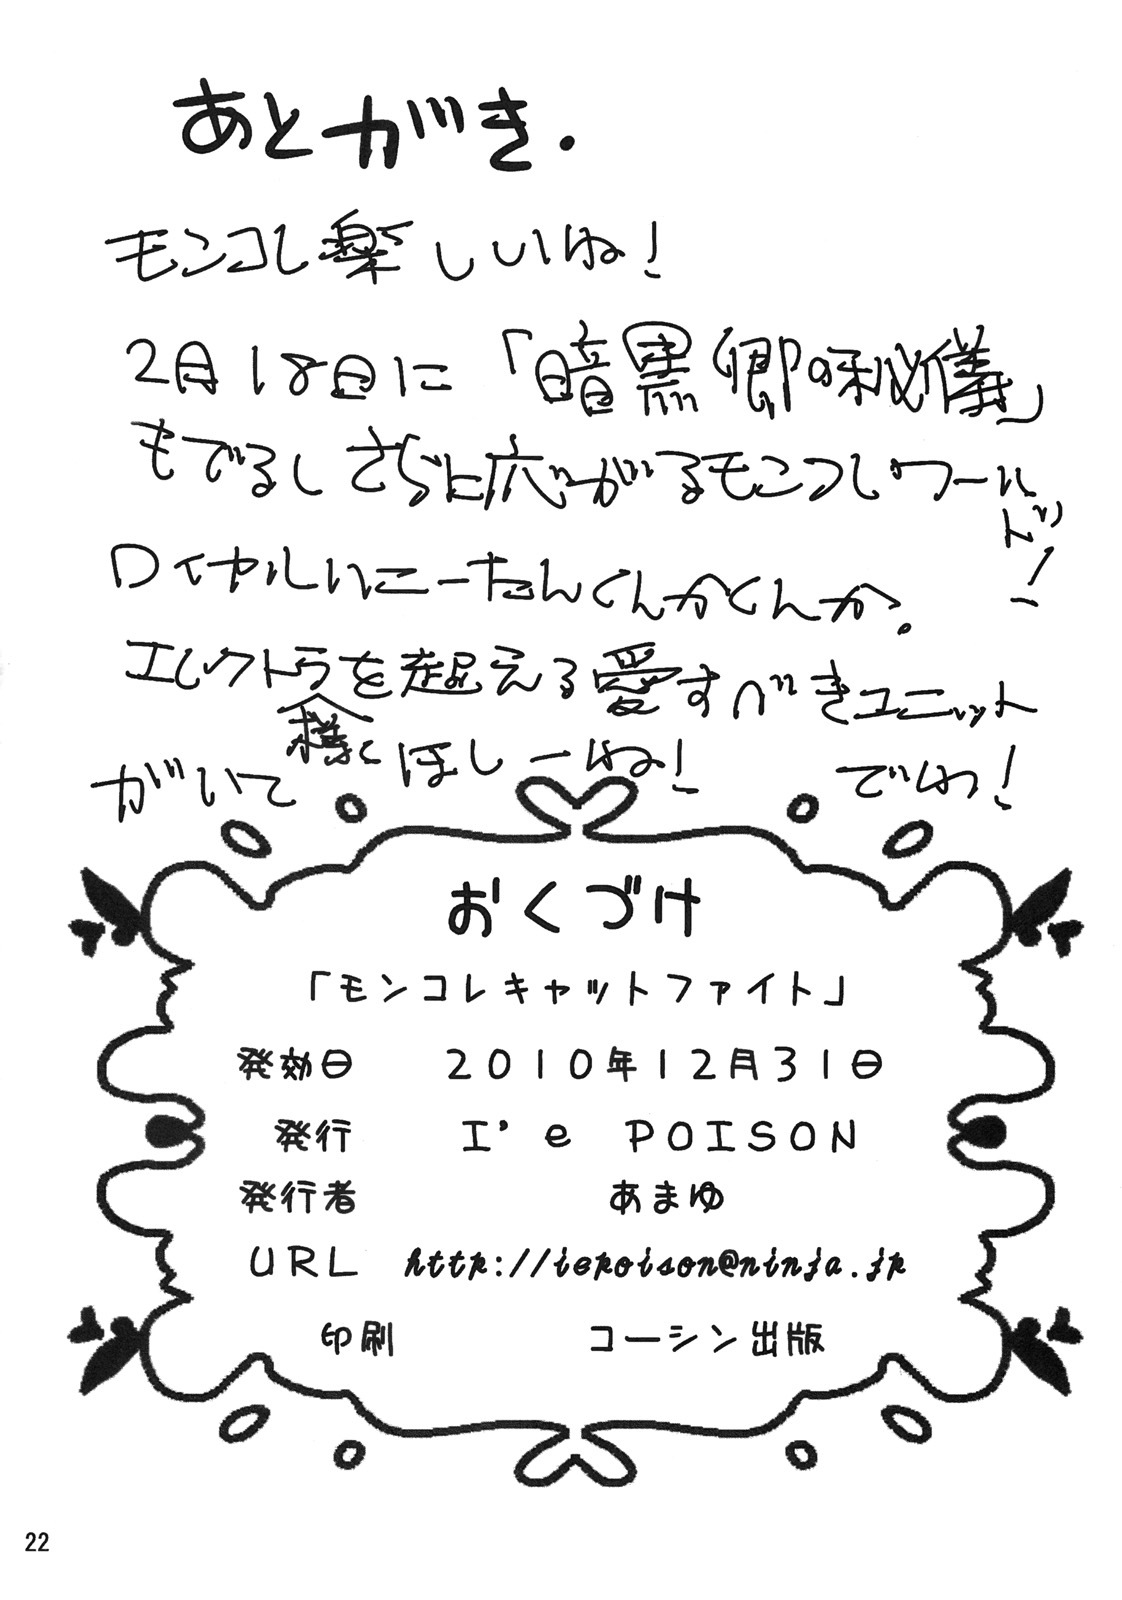 あとがき.
モンコレ楽しいね!
2月18日に「暗黒卿の秘儀」
もでるしさらに広がるモンコレワールド!
ロイヤルいこーたんくんかくんか。
エレクトラ様を超える愛すべきユニット
がいてほしーね! でわ!
おくづけ
「モンコレキャットファイト」
発効日 2010年12月31日
発行 I'e POISON
発行者 あまゆ
URL http://iepoison@ninja.jp
印刷 コーシン出版
22